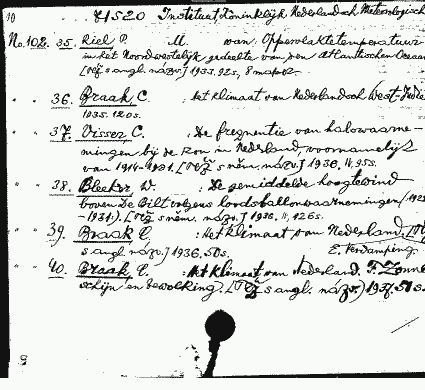 10 41520 Instituut, Koninklijk Nederlandsch Meteorologisch
No. 102. 35. Riel P. M. van: Oppervlaktetemperatuur
in het Noordwestelijk gedeelte van den Atlantischen Oceaan
[též s angl. názv.] 1933. 92s, 8 map
" " 36. Braak, C. : Het klimaat van Nederlandsch West-Indië
1935. 120s.
" " 37. Visser, C. : De frequentie van halowaarne-
mingen bij de Zon in Nederland, voornamelijk
van 1914-1931. [též s něm. názv.] 1936. II, 95s.
" " 38. Bleeker, W. : De gemiddelde hoogtewind
boven De Bilt volgens loodsballonwaarnemingen (1922
-1931). [též s něm. názv.] 1936. II, 126s.
" " 39. Braak C. : Het klimaat van Nederland.
s angl. názv.] 1936. 50s. E. Verdamping.
" " 40. Braak, C. : Het klimaat van Nederland. F. Zonne
schijn en bewolking. [Též s angl. názv.) 1937. 51s.